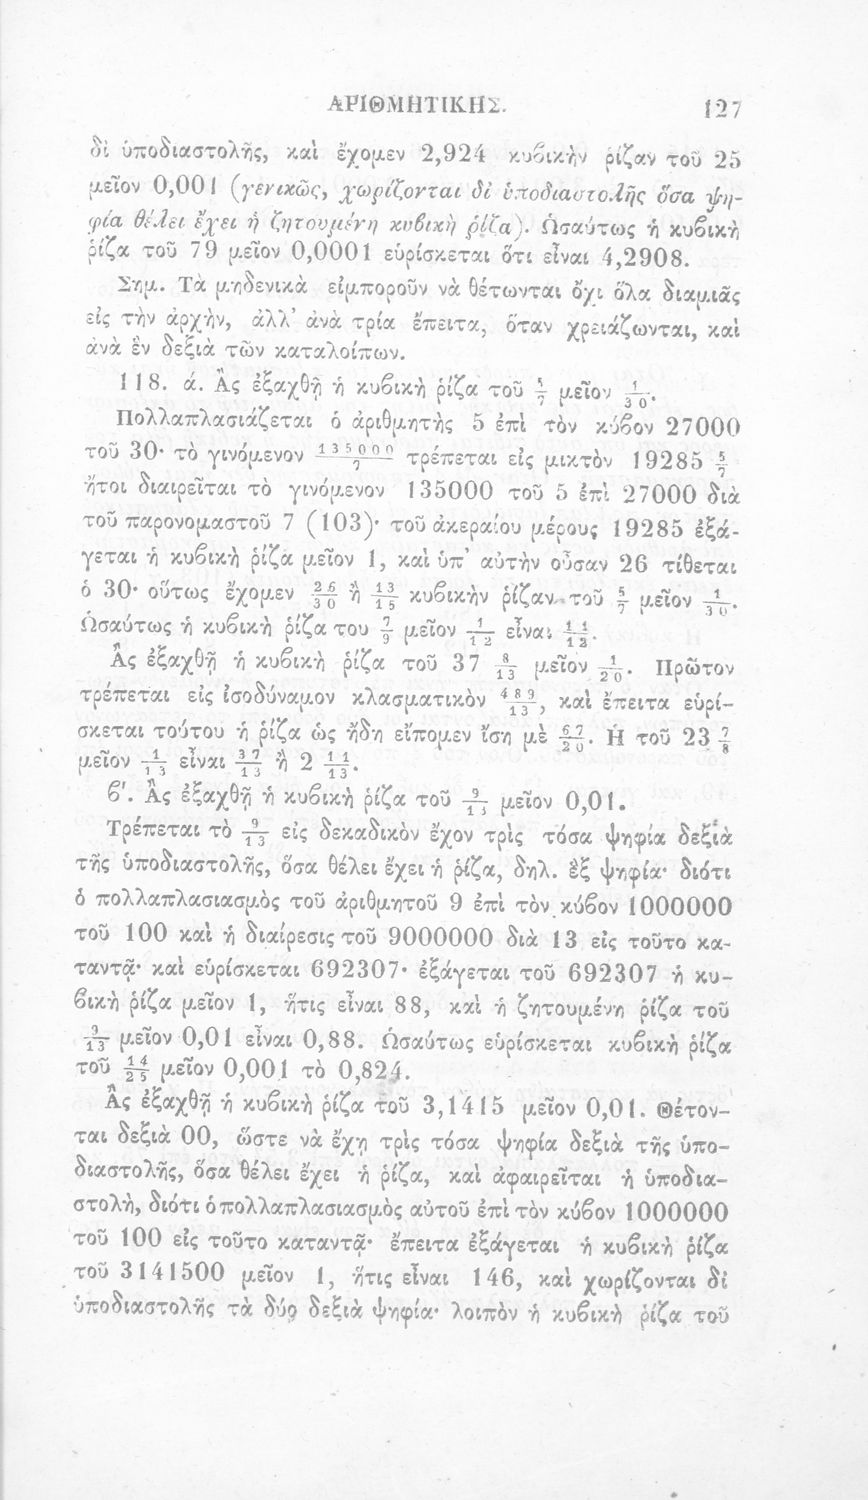 ΑΡΙΘΜΗΤΙΚΗΣ. 127
δι' ὑποδιαστολῆς, καὶ ἔχομεν 2,924 κυβικὴν ῥίζαν τοῦ 25
μεῖον 0,001 (γενικῶς, χωρίζονται δι' ὑποδιαστολῆς ὅσα ψη-
φία θέλει ἔχει ἡ ζητουμένη κυβικὴ ῥίζα). Ὡσαύτως ἡ κυβικὴ
ῥίζα τοῦ 79 μεῖον 0,0001 εὑρίσκεται ὅτι εἶναι 4,2908.
Σημ. Τὰ μηδενικὰ εἰμποροῦν νὰ θέτωνται ὄχι ὅλα διαμιᾶς
εἰς τὴν ἀρχὴν, ἀλλ' ἀνὰ τρία ἔπειτα, ὅταν χρειάζωνται, καὶ
ἀνὰ ἓν δεξιὰ τῶν καταλοίπων.
118. ά. Ἂς ἐξαχθῇ ἡ κυβικὴ ῥίζα τοῦ 5/7 μεῖον 1/30.
Πολλαπλασιάζεται ὁ ἀριθμητὴς 5 ἐπὶ τὸν κύβον 27000
τοῦ 30· τὸ γινόμενον 135000/7 τρέπεται εἰς μικτὸν 19285 5/7
ἤτοι διαιρεῖται τὸ γινόμενον 135000 τοῦ 5 ἐπὶ 27000 διὰ
τοῦ παρονομαστοῦ 7 (103)· τοῦ ἀκεραίου μέρους 19285 ἐξά-
γεται ἡ κυβικὴ ῥίζα μεῖον 1, καὶ ὑπ' αὐτὴν οὖσαν 26 τίθεται
ὁ 30· οὕτως ἔχομεν 26/30 ἢ 13/15 κυβικὴν ῥίζαν τοῦ 5/7 μεῖον 1/30.
Ὡσαύτως ἡ κυβικὴ ῥίζα του 7/9 μεῖον 1/12 εἶναι 11/12.
Ἂς ἐξαχθῇ ἡ κυβικὴ ῥίζα τοῦ 37 8/13 μεῖον 1/20. Πρῶτον
τρέπεται εἰς ἰσοδύναμον κλασματικὸν 489/13, καὶ ἔπειτα εὑρί-
σκεται τούτου ἡ ῥίζα ὡς ἤδη εἴπομεν ἴση μὲ 67/20. Ἡ τοῦ 23 7/8
μεῖον 1/13 εἶναι 37/13 ἢ 2 11/13.
β'. Ἂς ἐξαχθῇ ἡ κυβικὴ ῥίζα τοῦ 9/13 μεῖον 0,01.
Τρέπεται τὸ 9/13 εἰς δεκαδικὸν ἔχον τρὶς τόσα ψηφία δεξιὰ
τῆς ὑποδιαστολῆς, ὅσα θέλει ἔχει ἡ ῥίζα, δηλ. ἓξ ψηφία· διότι
ὁ πολλαπλασιασμὸς τοῦ ἀριθμητοῦ 9 ἐπὶ τὸν κύβον 1000000
τοῦ 100 καὶ ἡ διαίρεσις τοῦ 9000000 διὰ 13 εἰς τοῦτο κα-
ταντᾷ· καὶ εὑρίσκεται 692307· ἐξάγεται τοῦ 692307 ἡ κυ-
βικὴ ῥίζα μεῖον 1, ἥτις εἶναι 88, καὶ ἡ ζητουμένη ῥίζα τοῦ
9/13 μεῖον 0,01 εἶναι 0,88. Ὡσαύτως εὑρίσκεται κυβικὴ ῥίζα
τοῦ 14/25 μεῖον 0,001 τὸ 0,824.
Ἂς ἐξαχθῇ ἡ κυβικὴ ῥίζα τοῦ 3,1415 μεῖον 0,01. Θέτον-
ται δεξιὰ 00, ὥστε νὰ ἔχῃ τρὶς τόσα ψηφία δεξιὰ τῆς ὑπο-
διαστολῆς, ὅσα θέλει ἔχει ἡ ῥίζα, καὶ ἀφαιρεῖται ἡ ὑποδια-
στολὴ, διότι ὁ πολλαπλασιασμὸς αὐτοῦ ἐπὶ τὸν κύβον 1000000
τοῦ 100 εἰς τοῦτο καταντᾷ· ἔπειτα ἐξάγεται ἡ κυβικὴ ῥίζα
τοῦ 3141500 μεῖον 1, ἥτις εἶναι 146, καὶ χωρίζονται δι'
ὑποδιαστολῆς τὰ δύο δεξιὰ ψηφία· λοιπὸν ἡ κυβικὴ ῥίζα τοῦ